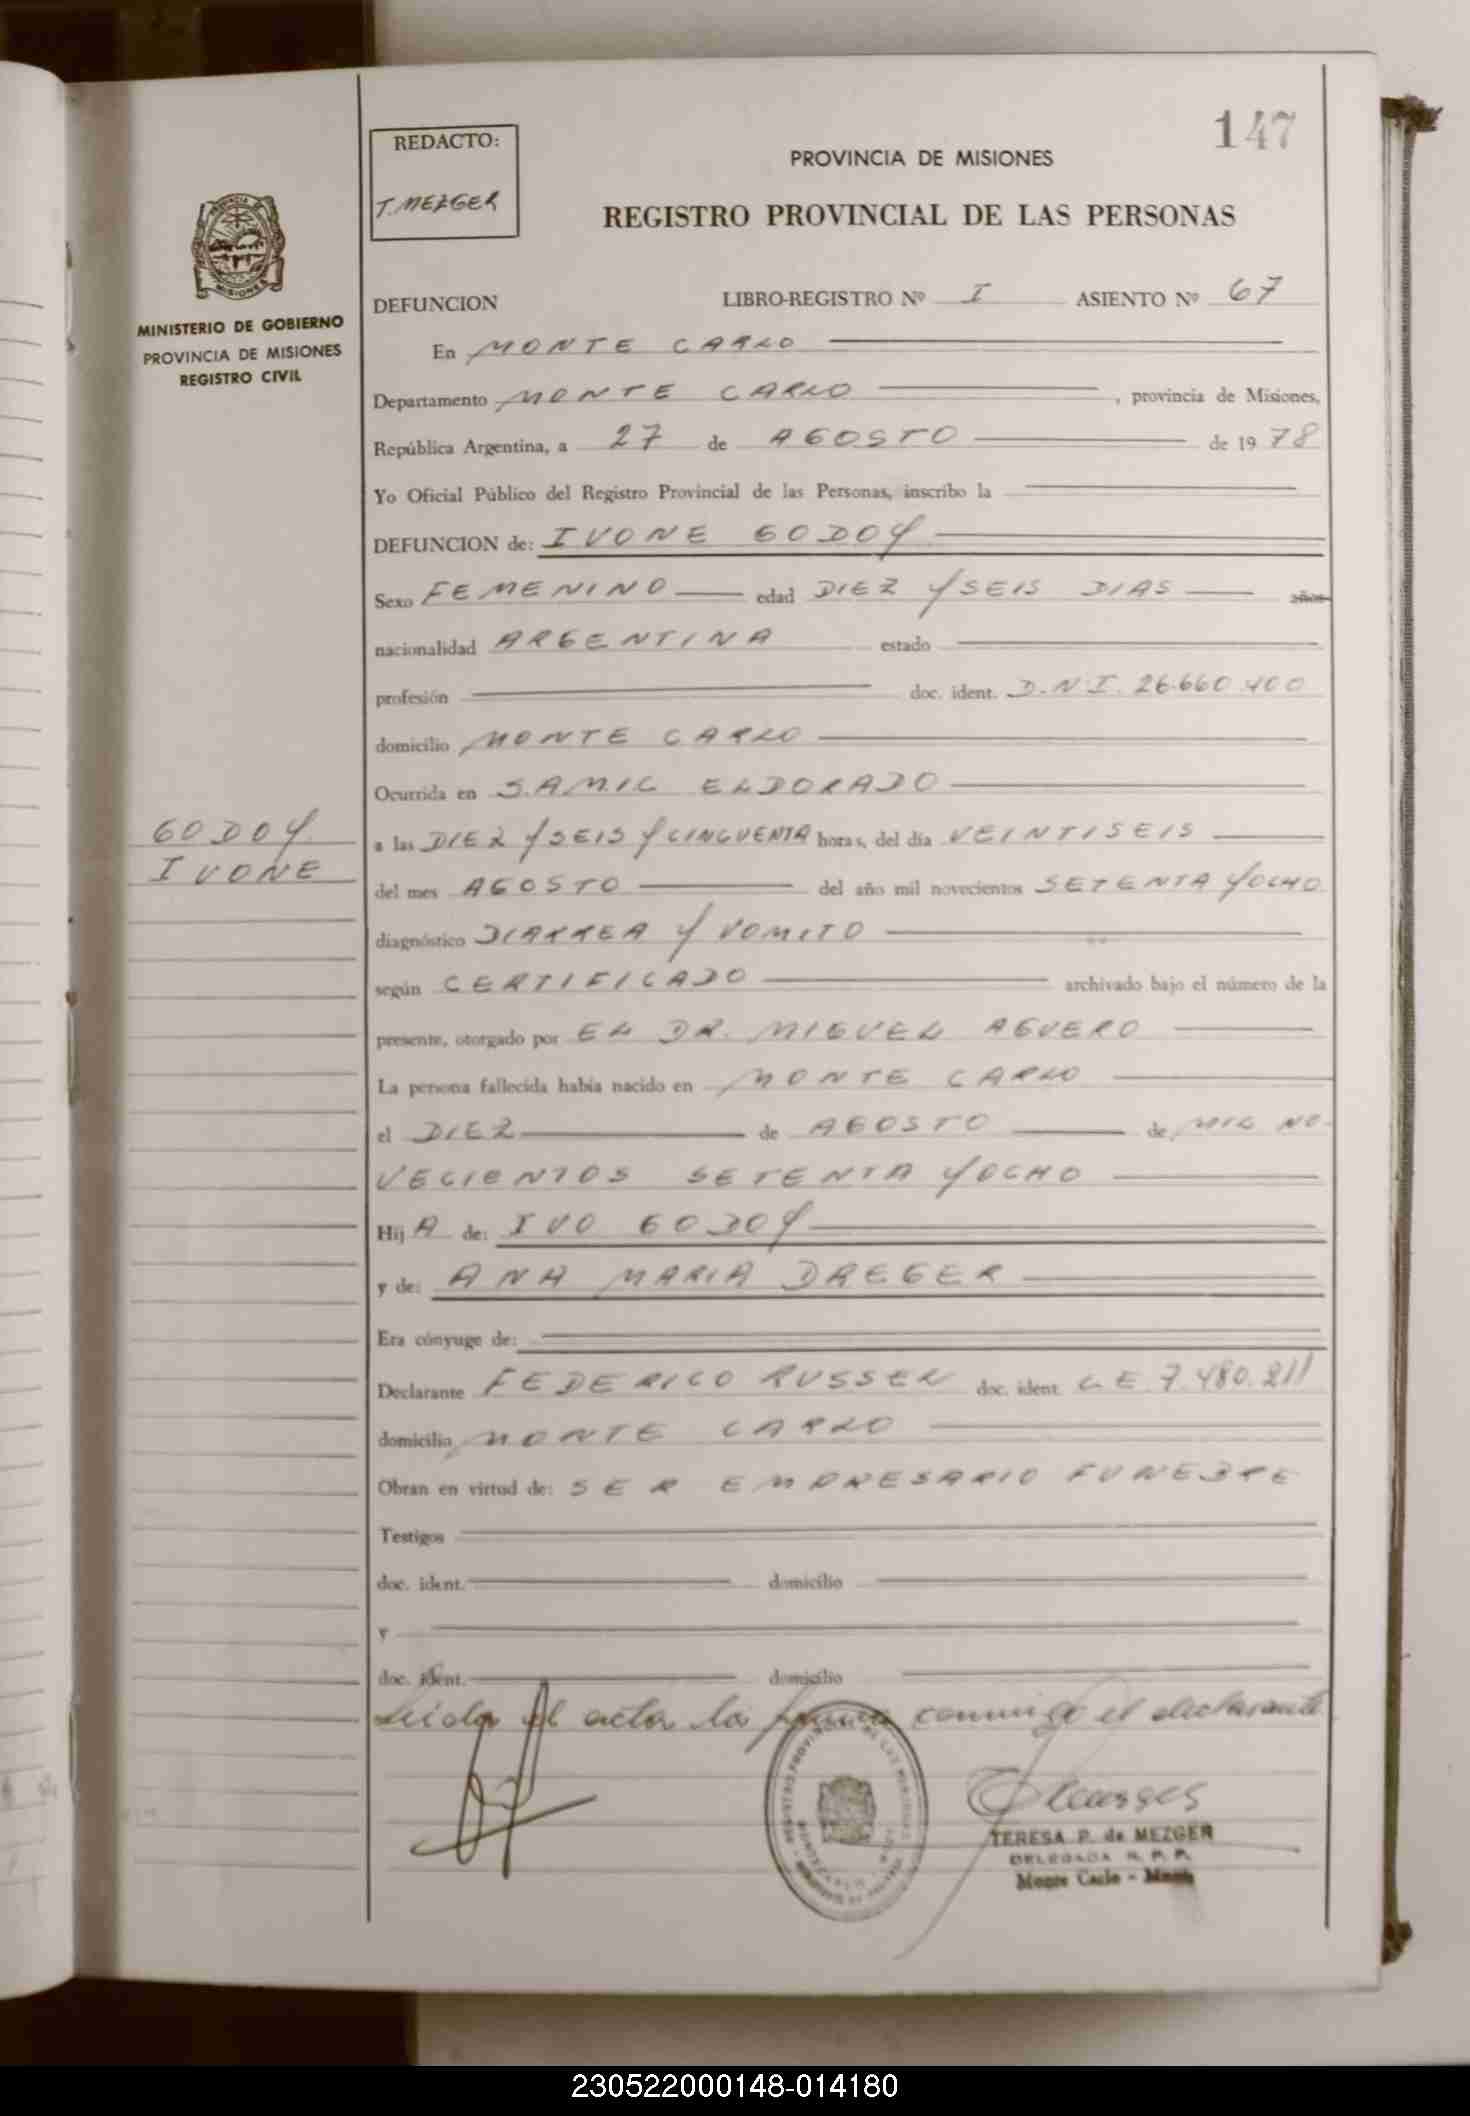 147
REDACTO:
T. MEZGER
PROVINCIA DE MISIONES
REGISTRO PROVINCIAL DE LAS PERSONAS
MINISTERIO DE GOBIERNO
PROVINCIA DE MISIONES
REGISTRO CIVIL
DEFUNCION LIBRO-REGISTRO Nº I ASIENTO Nº 67
En MONTE CARLO
Departamento MONTE CARLO, provincia de Misiones,
República Argentina, a 27 de AGOSTO de 1978
Yo Oficial Público del Registro Provincial de las Personas, inscribo la
DEFUNCION de: IVONE GODOY
Sexo FEMENINO edad DIEZ Y SEIS DIAS años
nacionalidad ARGENTINA estado
profesión doc. ident. D.N.I. 26.660.400
domicilio MONTE CARLO
Ocurrida en S.A.M.I.C ELDORADO
GODOY
IVONE
a las DIEZ Y SEIS Y CINCUENTA horas, del día VEINTISEIS
del mes AGOSTO del año mil novecientos SETENTA Y OCHO
diagnóstico DIARREA Y VOMITO
según CERTIFICADO archivado bajo el número de la
presente, otorgado por EL DR. MIGUEL AGUERO
La persona fallecida había nacido en MONTE CARLO
el DIEZ de AGOSTO de MIL NO-
VECIENTOS SETENTA Y OCHO
Hij A de: IVO GODOY
y de: ANA MARIA DREGER
Era cónyuge de:
Declarante FEDERICO RUSSEL doc. ident. L.E. 7.480.211
domicilio MONTE CARLO
Obran en virtud de: SER EMPRESARIO FUNEBRE
Testigos
doc. ident. domicilio
y
doc. ident. domicilio
Leida el acta la firma conmigo el declarante
TERESA P. de MEZGER
DELEGADA R. P. P.
Monte Carlo - Mnes
230522000148-014180